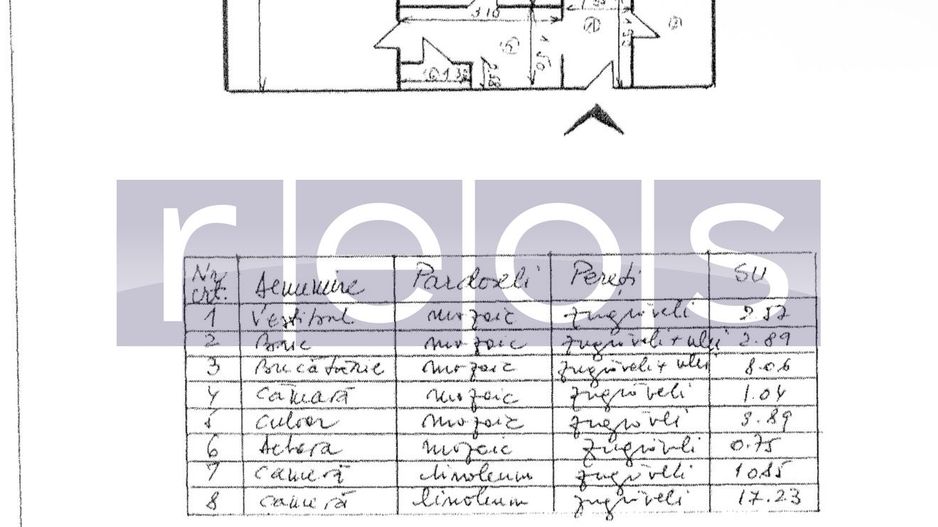 3.10
1.50
1
2
5
6 1.30
reos
Nr. crt. Denumire Pardoseli Pereți SU
1 Vestibul mozaic zugrăveli
2 Baie mozaic zugrăveli + ulei 2.89
3 Bucătărie mozaic zugrăveli + ulei 8.06
4 Cămară mozaic zugrăveli 1.04
5 Culoar mozaic zugrăveli 3.89
6 mozaic zugrăveli 0.75
7 cameră linoleum zugrăveli 10.85
8 cameră linoleum zugrăveli 17.23